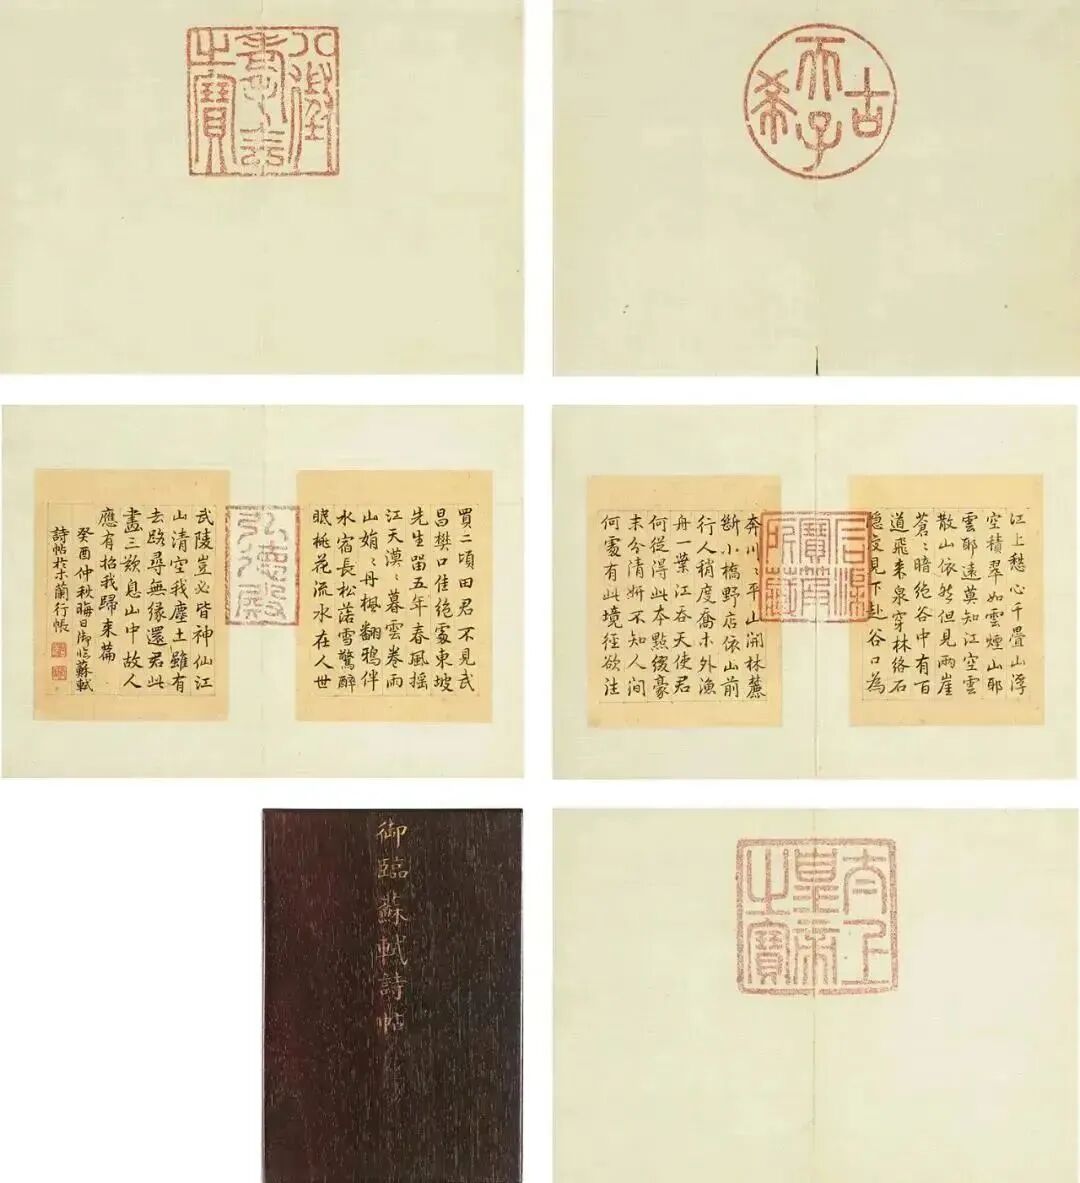 古希天子
八徵耄念之寶
江上愁心千疊山浮
空積翠如雲煙山耶
雲耶遠莫知江空雲
散山依然但見兩崖
蒼〻暗絕谷中有百
道飛來泉穿林絡石
隱復見下赴谷口為
寶笈所藏
奔川〻平山開林麓
斷小橋野店依山前
行人稍度喬木外漁
舟一葉江吞天使君
何從得此本點綴豪
末分清妍不知人間
何處有此境徑欲往
買二頃田君不見武
昌樊口佳絕處東坡
先生留五年春風搖
江天漠〻暮雲卷雨
山娟〻丹楓翻鴉伴
水宿長松落雪驚醉
眠桃花流水在人世
武陵豈必皆神仙江
山清空我塵土雖有
去路尋無緣還君此
畫三歎息山中故人
應有招我歸來篇
癸酉仲秋晦日御臨蘇軾
詩帖於木蘭行帳
太上皇帝之寶
御臨蘇軾詩帖